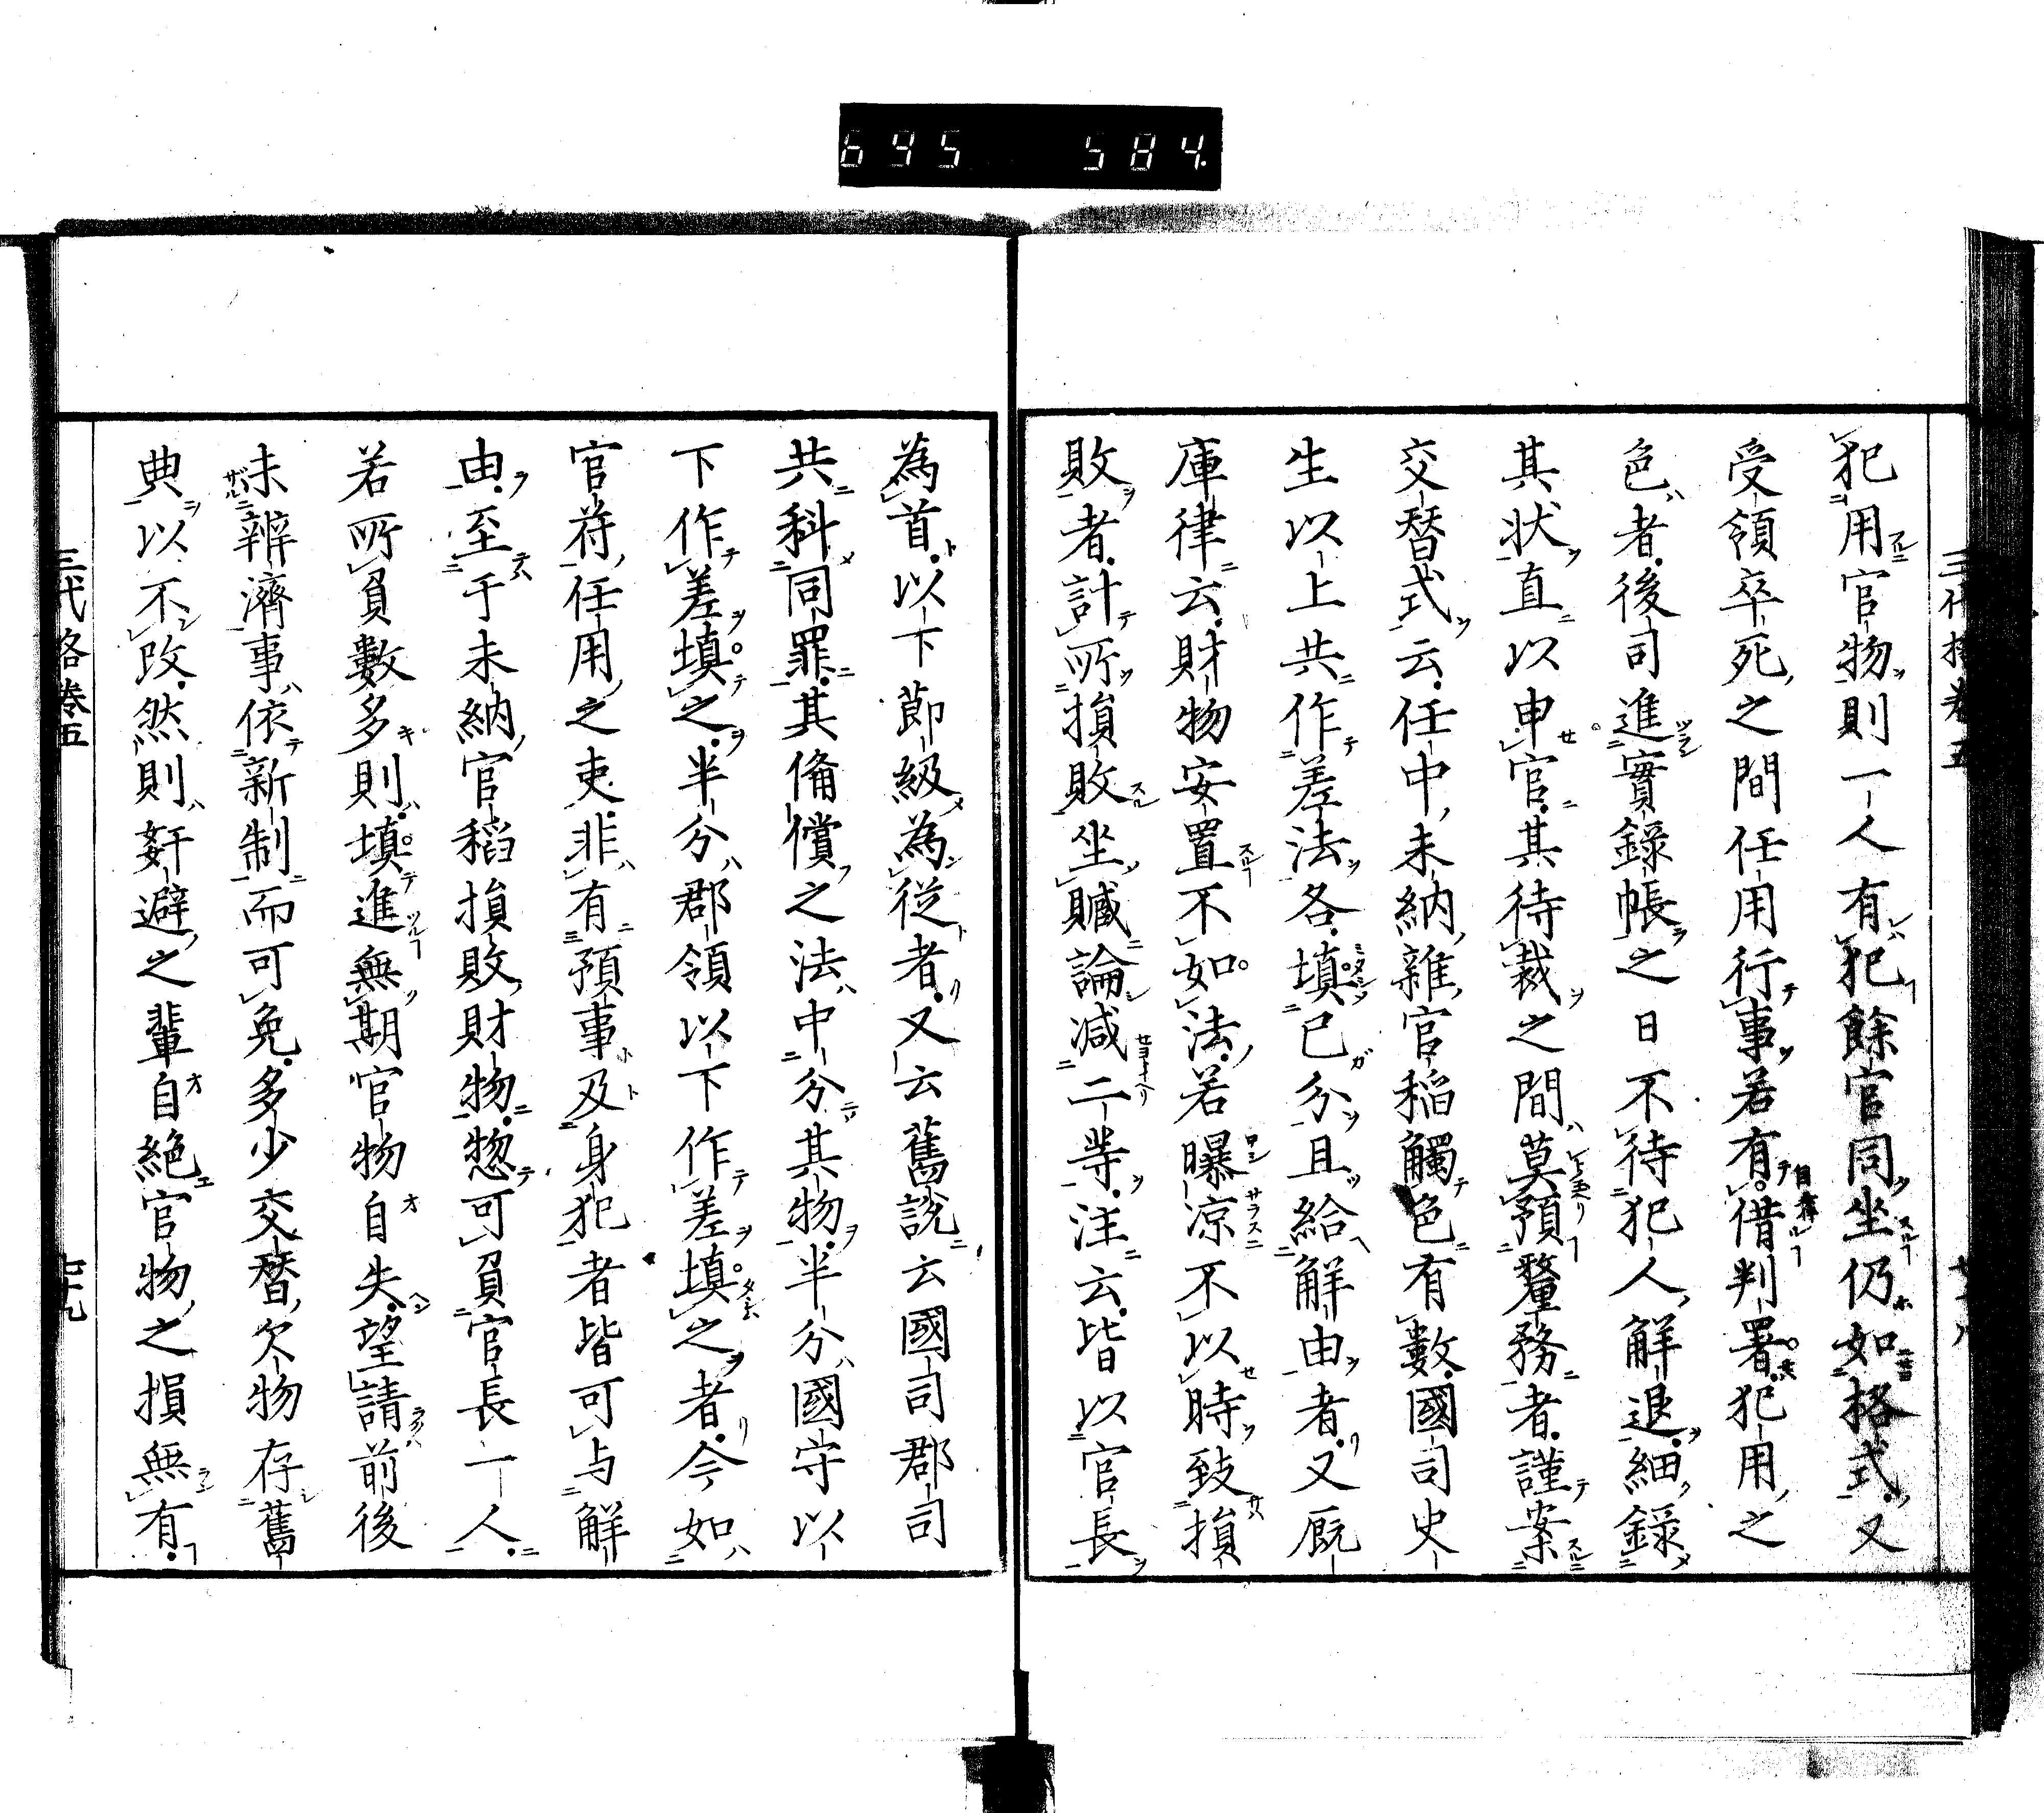 695 584
三代格卷五
犯用官物則一人有犯餘官同坐仍如格式又
受領卒死之間任用行事若有借判署犯用之
色者後司進實錄帳之日不待犯人解退細錄
其状直以申官其待裁之間莫預釐務者謹案
交替式云任中未納雜官稲觸色有數國司史
生以上共作差法各填已分且給解由者又厩
庫律云財物安置不如法若曝凉不以時致損
敗者計所損敗坐贓論减二等注云皆以官長
為首以下節級為從者又云舊說云國司郡司
共科同罪其俻償之法中分其物半分國守以
下作差填之半分郡領以下作差填之者今如
官符任用之吏非有預事及身犯者皆可与解
由至于未納官稻損敗財物惣可負官長一人
若所負數多則填進無期官物自失望請前後
未辨濟事依新制而可免多少交替欠物存舊
典以不改然則奸避之輩自絶官物之損無有
三代格卷五
七十九